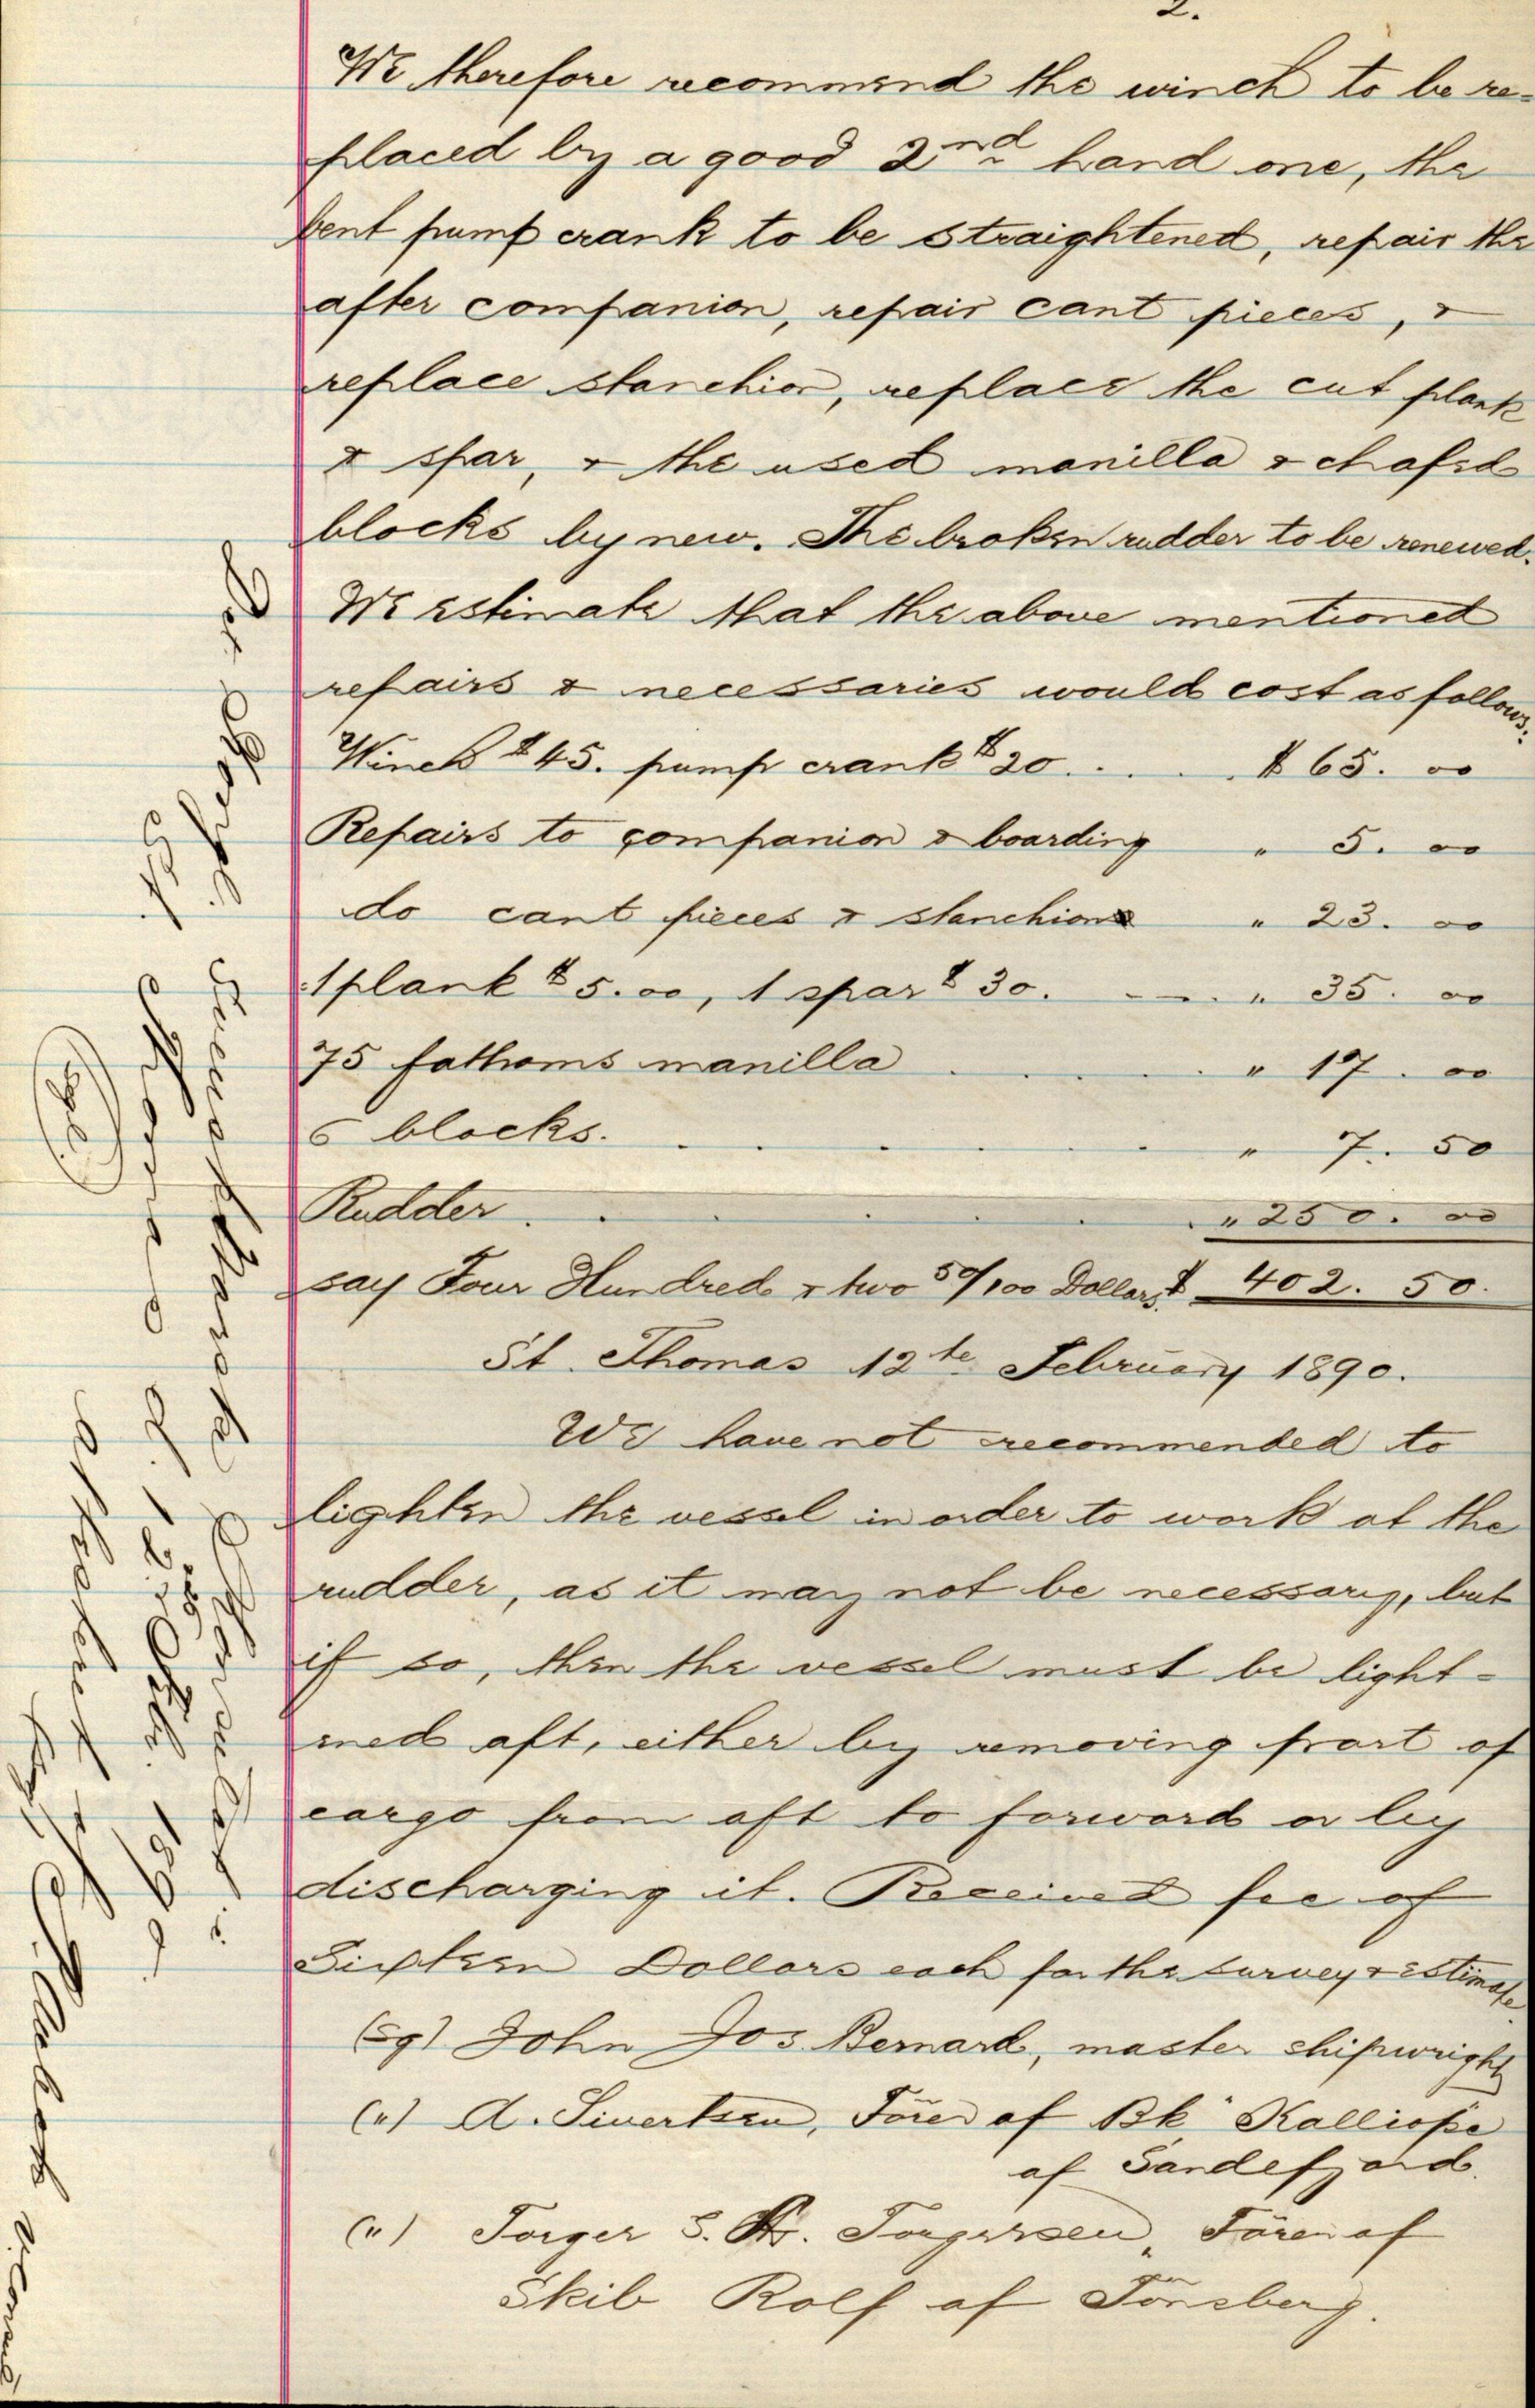 2.
We therefore recommend the winch to be re-
placed by a good 2nd hand one, the
bent pump crank to be straightened, repair the
after companion, repair cant pieces, &
replace stanchion, replace the cut plank
& spar, & the used manilla & chafed
blocks by new. The broken rudder to be renewed.
We estimate that the above mentioned
repairs & necessaries would cost as follows:
Winch $45. pump crank $20. . . . $ 65. 00
Repairs to companion & boarding " 5. 00
do cant pieces & stanchion " 23. 00
1 plank $5.00, 1 spar $30. - - . " 35. 00
75 fathoms manilla . . . . " 17. 00
6 blocks. . . . . . " 7. 50
Rudder . . . . . . " 250. 00
say Four Hundred & two 50/100 Dollars $ 402. 50.
St. Thomas 12te February 1890.
We have not recommended to
lighten the vessel in order to work at the
rudder, as it may not be necessary, but
if so, then the vessel must be light-
ened aft, either by removing part of
cargo from aft to forward or by
discharging it. Received fee of
Sixteen Dollars each for the survey & estimate.
(sg) John Jos. Bernard, master shipwright
(") A. Sivertsen, Förer af Bk "Kalliope
af Sandefjord.
(") Torger S. Torgersen, Förer af
Skib Rolf af Tönsberg.
St. Thomas d. 12. Febr. 1890.